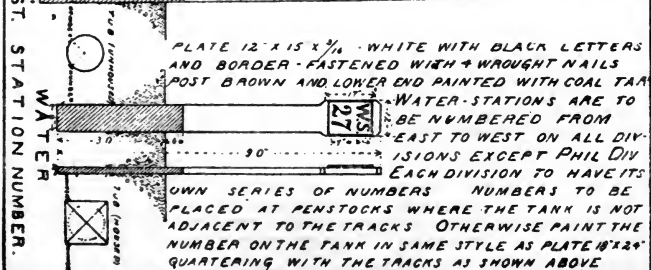 PLATE 12" X 15 X 3/16 · WHITE WITH BLACK LETTERS
AND BORDER - FASTENED WITH 4 WROUGHT NAILS
POST BROWN AND LOWER END PAINTED WITH COAL TAR
WATER-STATIONS ARE TO
BE NUMBERED FROM
EAST TO WEST ON ALL DIV-
ISIONS EXCEPT PHIL DIV
EACH DIVISION TO HAVE ITS
OWN SERIES OF NUMBERS NUMBERS TO BE
PLACED AT PENSTOCKS WHERE THE TANK IS NOT
ADJACENT TO THE TRACKS OTHERWISE PAINT THE
NUMBER ON THE TANK IN SAME STYLE AS PLATE 18"X24"
QUARTERING WITH THE TRACKS AS SHOWN ABOVE
WS
27
9'0"
3'0"
WATER
STATION NUMBER.
TUB
TUB